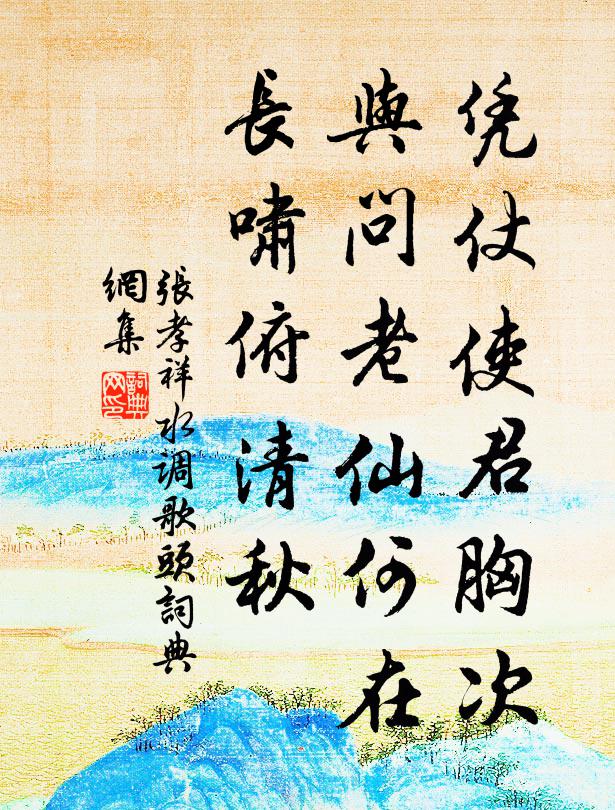 凭仗使君胸次
與問老仙何在
長嘯俯清秋
張孝祥水调歌頭詞典
網集
詞典
网印